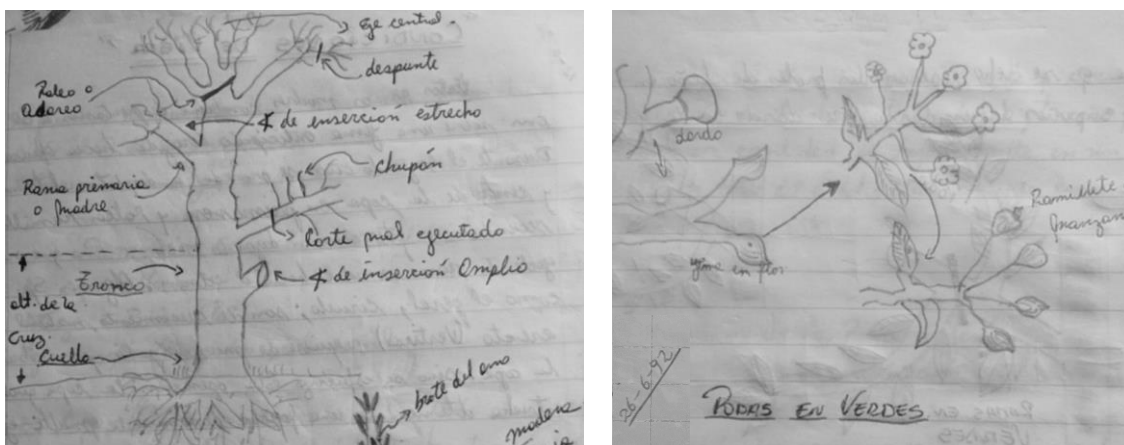 Eje central.
despunte
Raleo o
Aclareo
∢ de inserción estrecho
Chupón
Rama primaria
o madre
Corte mal ejecutado
∢ de inserción Amplio
Tronco
alt. de la
Cruz.
Cuello
brote del año
madera
dardo
yema en flor
Ramillete
manzan
26-6-92
PODAS EN VERDES